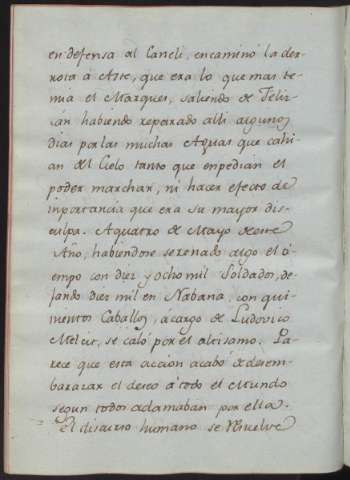 en defensa al Caneli, encaminó la der-
rota á Aste, que era lo que mas te-
mia el Marques, saliendo de Feliz-
án habiendo reparado alli algunos
dias por las muchas Aguas que cahi-
an del Cielo tanto que enpedian el
poder marchar, ni hacer efecto de
inportancia que era su mayor dis-
culpa. A quatro de Mayo de este
Año, habiendose serenado algo el ti-
empo con diez y ocho mil Soldados, de-
jando diez mil en Nabana, con qui-
nientos Caballos, á cargo de Ludovico
Melcio, se caló por el altisamo. Pa-
rece que esta accion acabó de desem-
barazar el deseo á todo el Mundo
segun todos aclamaban por ella.
El discurso humano se resuelve